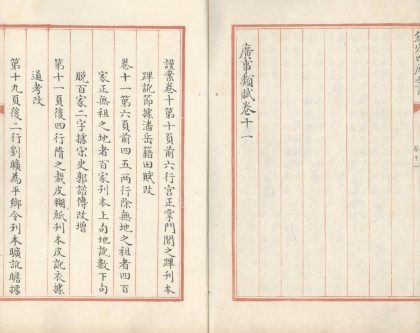 欽定四庫全書
卷十一
廣事類賦卷十一
謹案卷十第十頁前六行宮正掌門閤之蹕刊本
蹕訛節據潘岳籍田賦改
卷十一第六頁前四五兩行除無地之租者四百
家正無租之地者百家刊本上句地訛數下句
脱百家二字據宋史郭諮傳改增
第十一頁後四行隋之裁皮糊紙刊本皮訛衣據
通考改
第十九頁後二行劉曠為平鄉令刊本曠訛瞻據